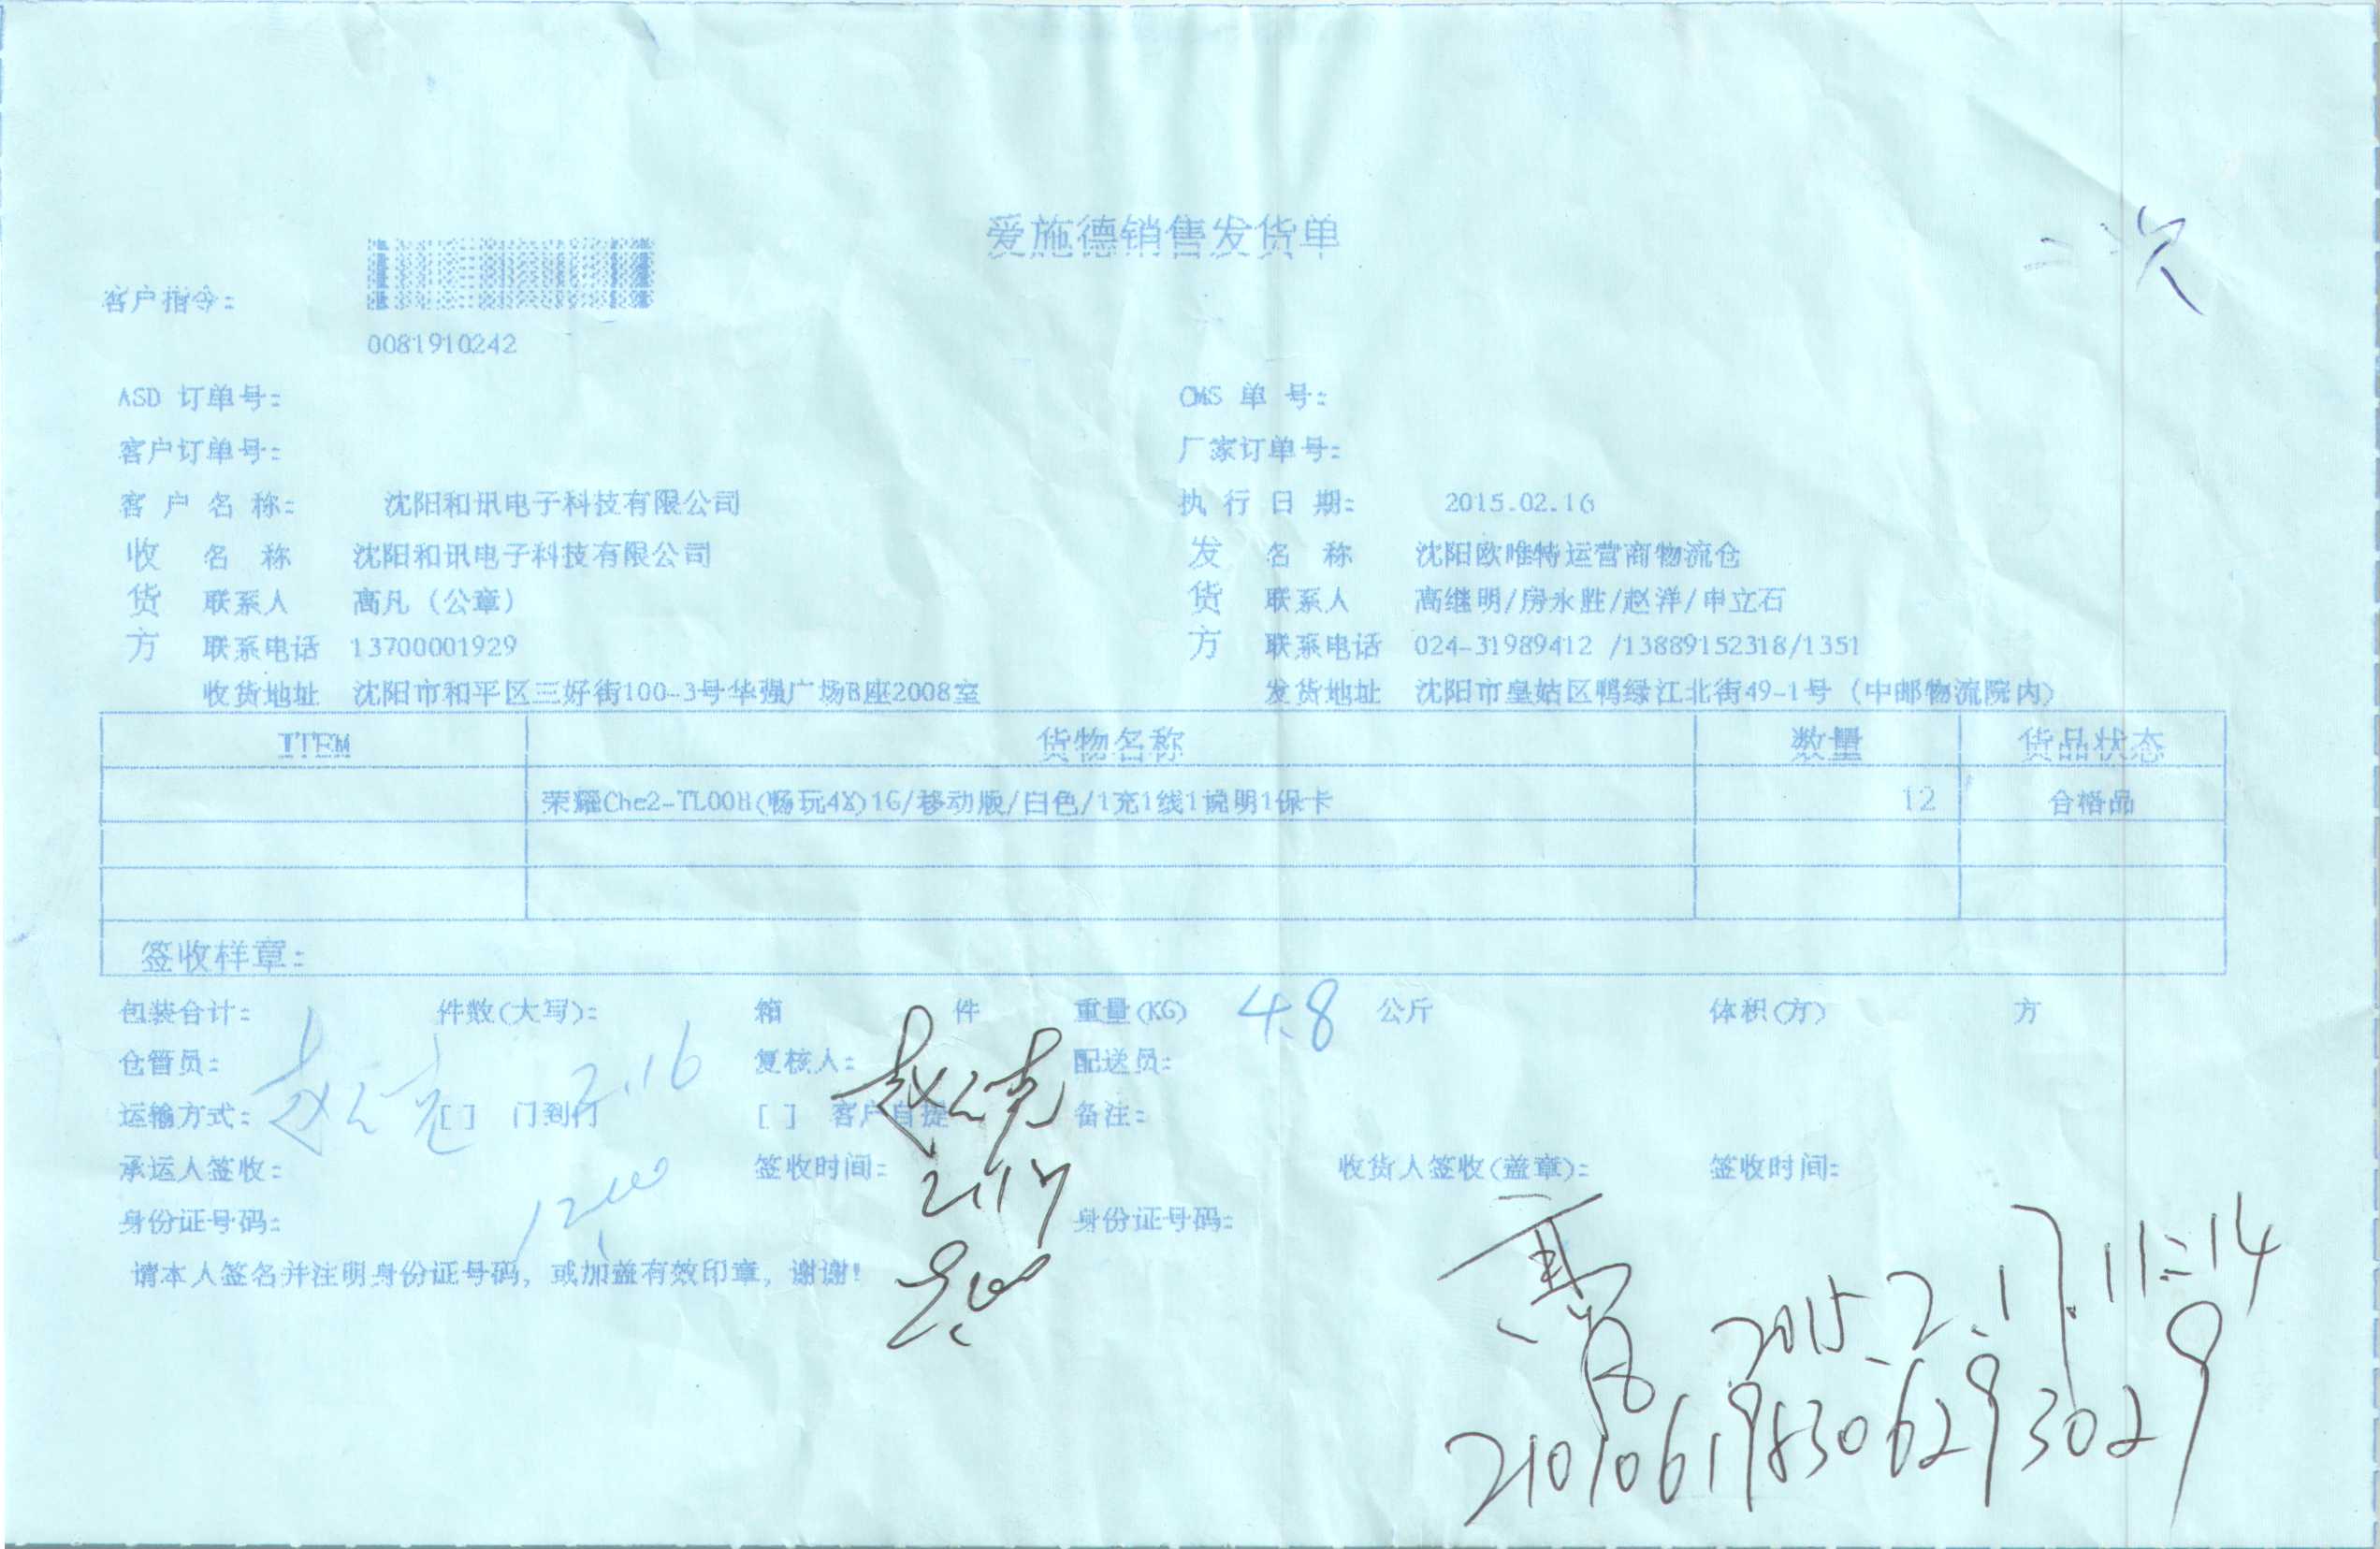 爱施德销售发货单
二次
客户指令:
0081910242
ASD 订单号: OMS 单 号:
客户订单号: 厂家订单号:
客 户 名 称: 沈阳和讯电子科技有限公司 执 行 日 期: 2015.02.16
收 名 称 沈阳和讯电子科技有限公司 发 名 称 沈阳欧唯特运营商物流仓
货 联系人 高凡 (公章) 货 联系人 高继明/房永胜/赵洋/申立石
方 联系电话 13700001929 方 联系电话 024-31989412 /13889152318/1351
收货地址 沈阳市和平区三好街100-3号华强广场B座2008室 发货地址 沈阳市皇姑区鸭绿江北街49-1号 (中邮物流院内)
ITEM 货物名称 数量 货品状态
荣耀Che2-TL00H(畅玩4X)1G/移动版/白色/1充1线1说明1保卡 12 合格品
签收样章:
包装合计: 件数(大写): 箱 件 重量(KG) 4.8 公斤 体积(方) 方
仓管员: 2.16 复核人: 配送员:
运输方式: [ ] 门到门 [ ] 客户自提 备注:
承运人签收: 签收时间: 2.17 收货人签收(盖章): 签收时间:
身份证号码: 身份证号码:
请本人签名并注明身份证号码, 或加盖有效印章, 谢谢!
2015.2.17.11:14
210106198306293029